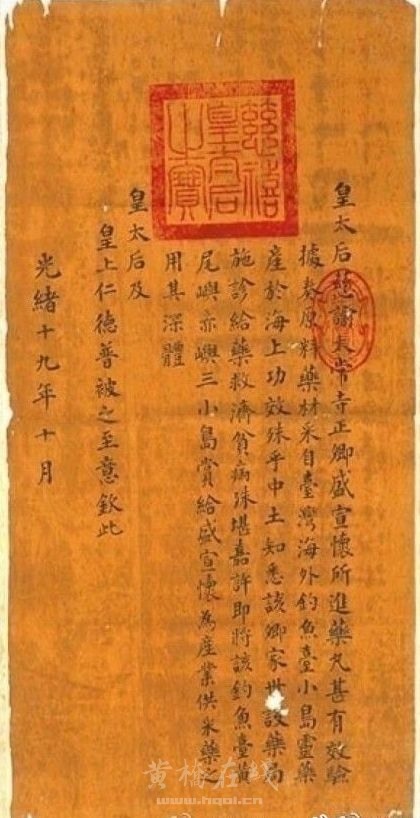 慈禧
皇太后
之寶
皇太后慈諭太常寺正卿盛宣懷所進藥丸甚有效驗
據奏原料藥材采自臺灣海外釣魚臺小島靈藥
產於海上功效殊乎中土知悉該卿家世設藥局
施診給藥救濟貧病殊堪嘉許即將該釣魚臺黃
尾嶼赤嶼三小島賞給盛宣懷為產業供采藥之
用其深體
皇太后及
皇上仁德普被之至意欽此
光緒十九年十月
黄梅在线